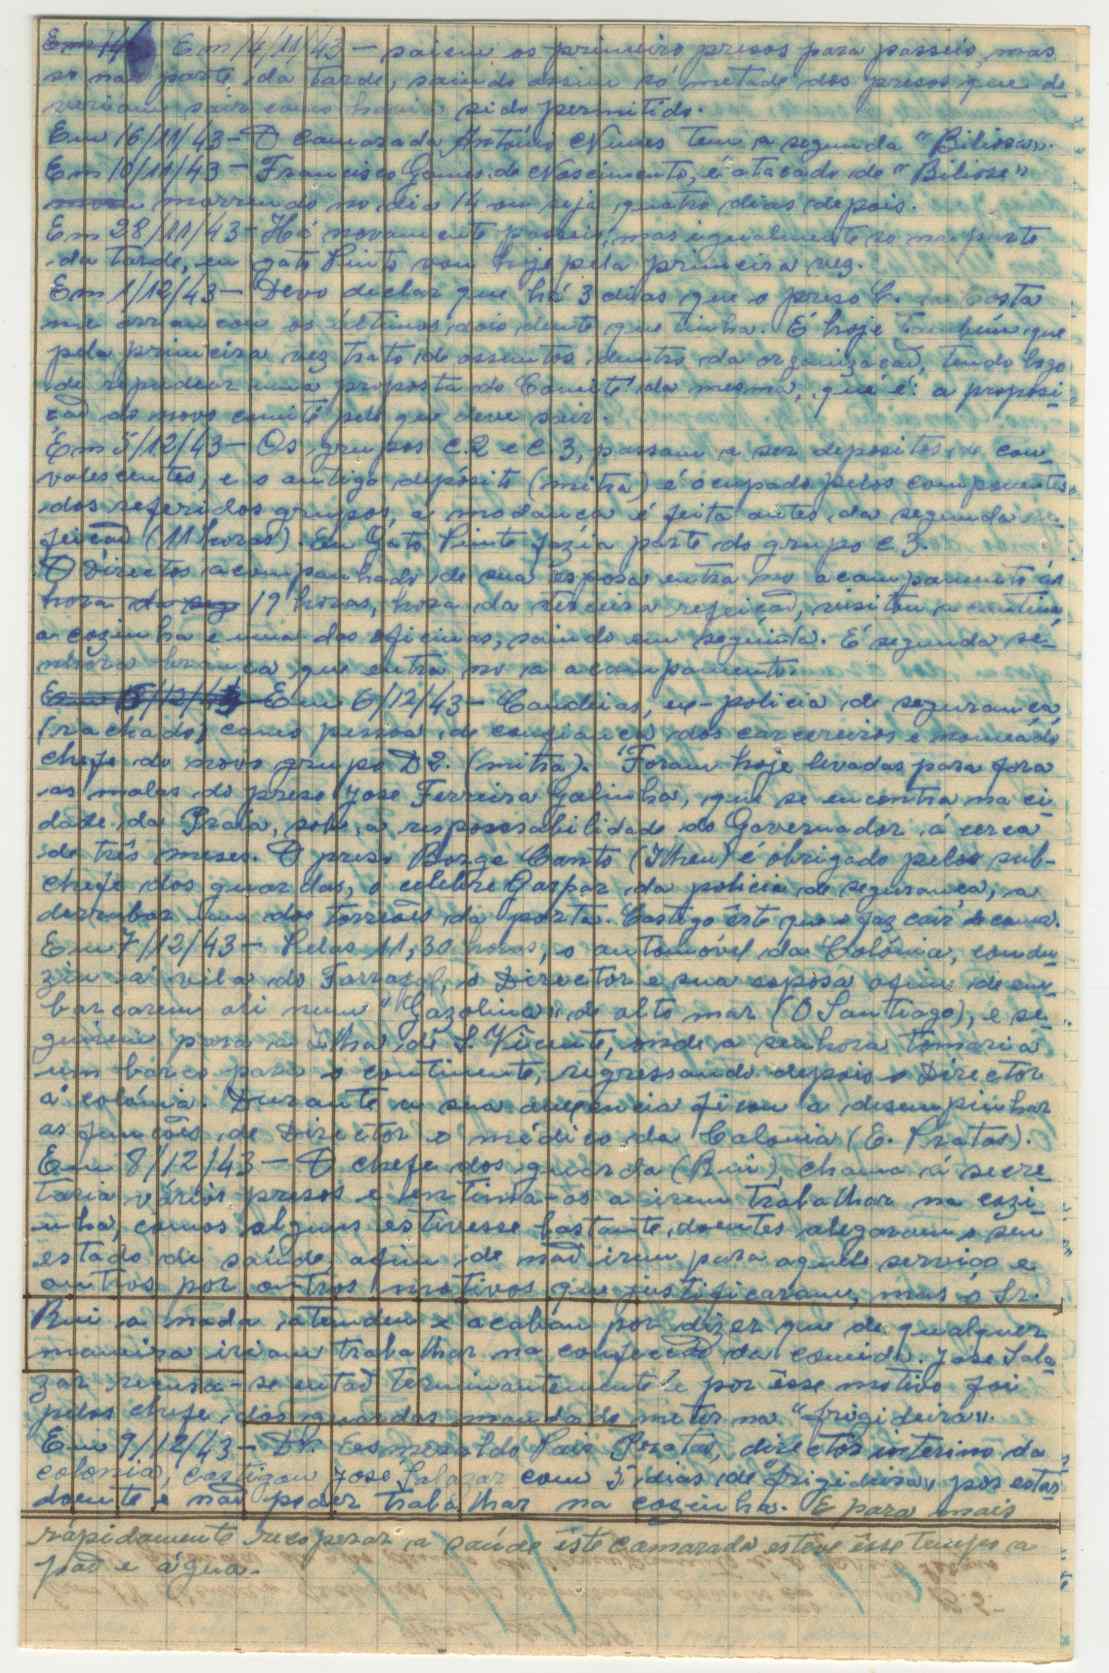 Em 14/11/43 - saiem os primeiros presos para passeio, mas
só na parte da tarde, saindo assim só metade dos presos que de-
veriam sair como havia sido permitido.
Em 16/11/43 - O camarada António Nunes tem a segunda "Biliosa".
Em 10/11/43 - Francisco Gomes do Nascimento, é atacado de "Biliose"
morrendo no dia 14 ou seja quatro dias depois.
Em 28/11/43 - Há novamente passeio, mas igualmente só na parte
da tarde, eu gato Pinto vou hoje pela primeira vez.
Em 1/12/43 - Devo declar que há 3 dias que o preso C. Costa
me arrancou os últimos dois dente que tinha. É hoje tambêm que
pela primeira vez trato de assuntos dentro da organização, tendo logo
de repudear uma proposta do Comité da mesma, que é: a proposi-
ção do novo comité pelo que deve sair.
Em 5/12/43 - Os grupos C.2 e C.3, passam a ser depositos, e con-
valescentes, e o antigo depósito (mitra) é ocupado pelos componentes
dos referidos grupos, a modança é feita antes da segunda re-
feição (11 horas). Eu Gato Pinto fazia parte do grupo C 3.
O Director acompanhado de sua esposa entra no acampamento ás
hora da seg 17 horas, hora da terceira refeição, visitou a cantina
a cozinha e uma das oficinas, saindo em seguida. É segunda se-
nhora branca que entra no a acampamento.
Em 6/12/43 - Candeias, ex-policia de segurança
(rachado) como pessoa de confiança dos carcereiros é nomeado
chefe do novo grupo D2. (mitra). Foram hoje levadas para fora
as malas do preso José Ferreira Galinha, que se encontra na ci-
dade da Praia, sob, a responsabilidade do Governador á cerca
de três meses. O preso Borge Canto (Ilheu) é obrigado pelso sub-
chefe dos guardas, o celebre Gaspar da policia de segurança, a
derrubar um dos torreões da porta. Castigo êste que o faz cair de cama.
Em 7/12/43 - Pelas 11,30 horas, o automóvel da Colónia, condu-
ziu á vila do Tarrafal, o Director e sua esposa afim de em-
barcarem ali num "Gazolina" de alto mar (O Santiago), e se-
guirem para a ilha de S. Vicente, onde a senhora tomaria
um barco para o continente, regressando depois o Director
á colónia. Durante a sua ausencia ficou a desempenhar
as funções de Director o médico da Colonia (E. Pratas).
Em 8/12/43 - O chefe dos guarda (Rui) chama á secre-
taria vários presos e intima-os a irem trabalhar na cozi-
nha, comos alguns estivesse bastante doentes alegaram o seu
estado de saúde, afim de não irem para aquele serviço e
outros por outros motivos que justificaram, mas o Sr.
Rui a nada atendeu e acabou por dizer que de qualquer
maneira iriam trabalhar na confecção da comida. José Sala-
zar recusa-se então terminantemente e por êsse motivo foi
pelos chefe dos guardas mandado meter na "frigideira".
Em 9/12/43 - Dr. Esmeraldo Pais Pratas, director interino da
colónia, castigou José Salazar com 5 dias de frigideira, por estar
doente e não poder trabalhar na cozinha. E para mais
rápidamente recoperar a saúde êste camarada esteve êsse tempo a
pão e água.